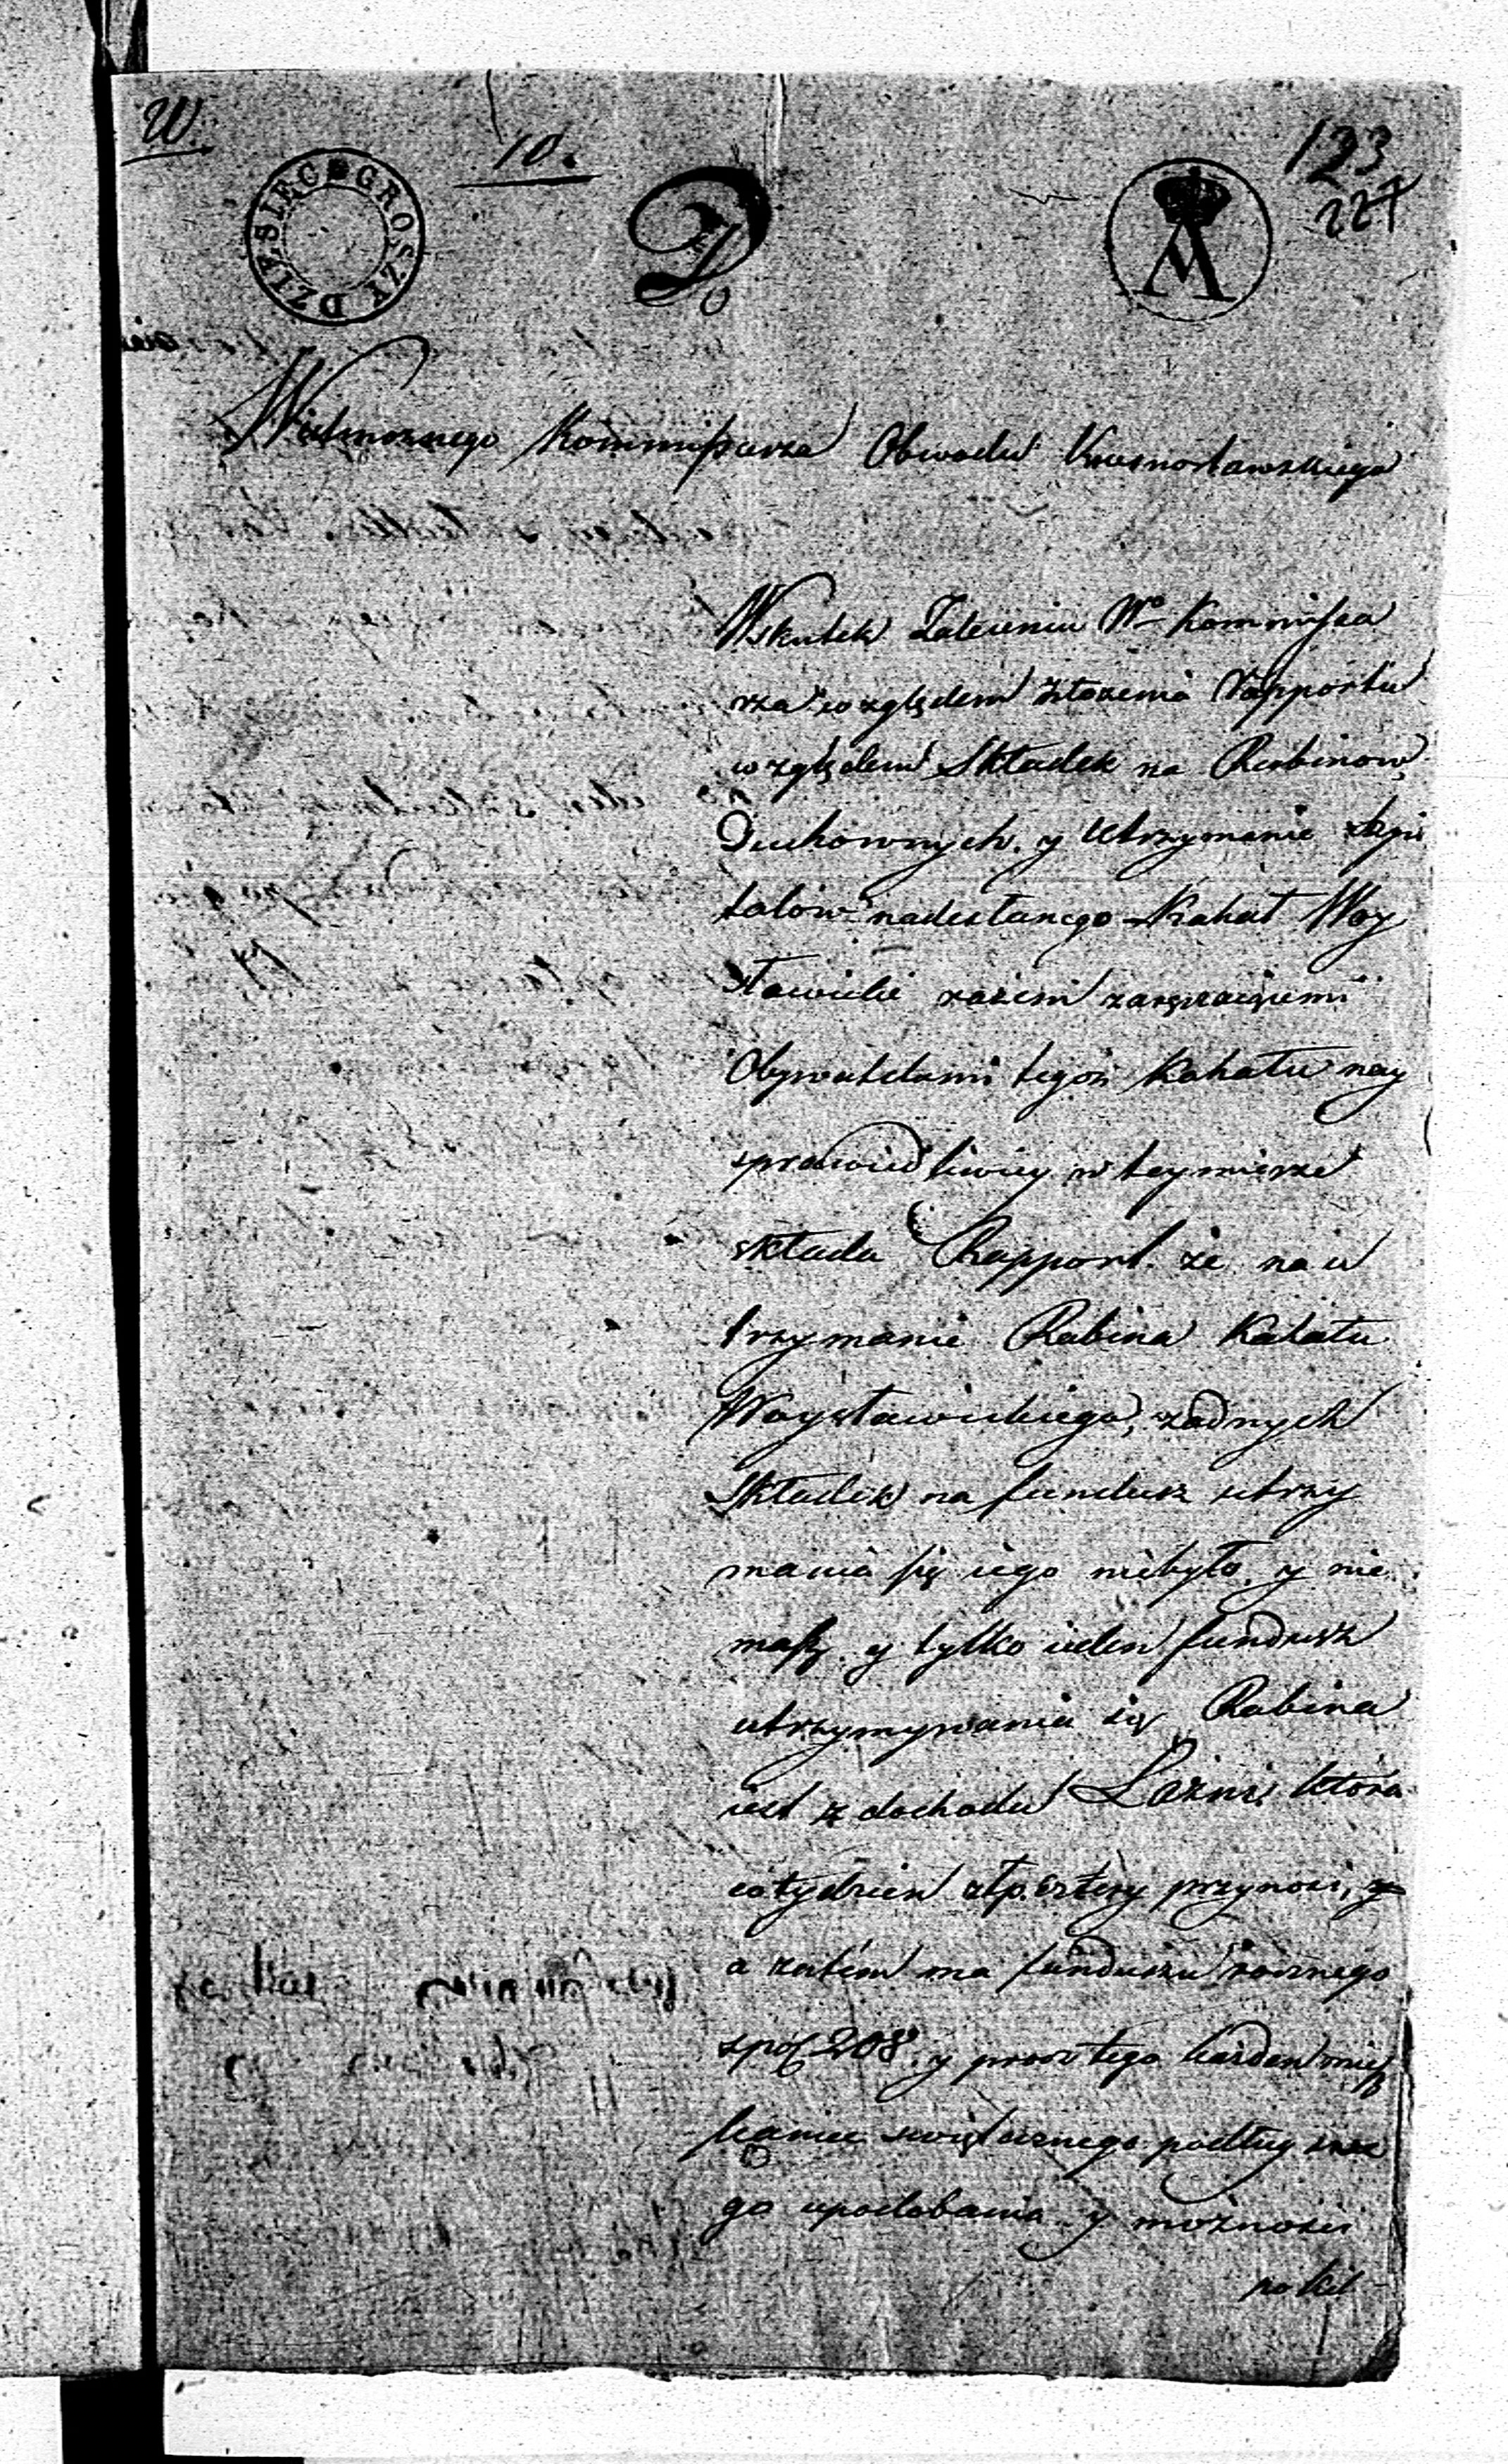 W.
10.
D
123
227
DZIESIĘC GROSZY
A
Wielmoznego Kommissarza Obwodu Krasnostawskiego
Wskutek Zalecenia Wo Kommissa
rza względem złozenia Rapportu
względem Składek na Rabinow
Duchownych. y Utrzymanie szpi
talow nadesłanego Kahał Woy
sławicki
Obywatelami tegoz Kahału nay
sprawiedliwiey w tey mierze
składa Rapport. że na u
trzymanie Rabina Kahału
Woysławickiego, zadnych
Składek na fundusz utrzy
mania się iego niebyło. y nie
masz. y tylko ieden fundusz
utrzymywania się Rabina
iest z dochodu Łazni, która
cotydzien złp. cztery przynosi,
a zatém ma funduszu rocznego
złp 208. y procz tego każden miesz
kaniec swiątecznego podług swe
go upodobania y możnosci
po kil-